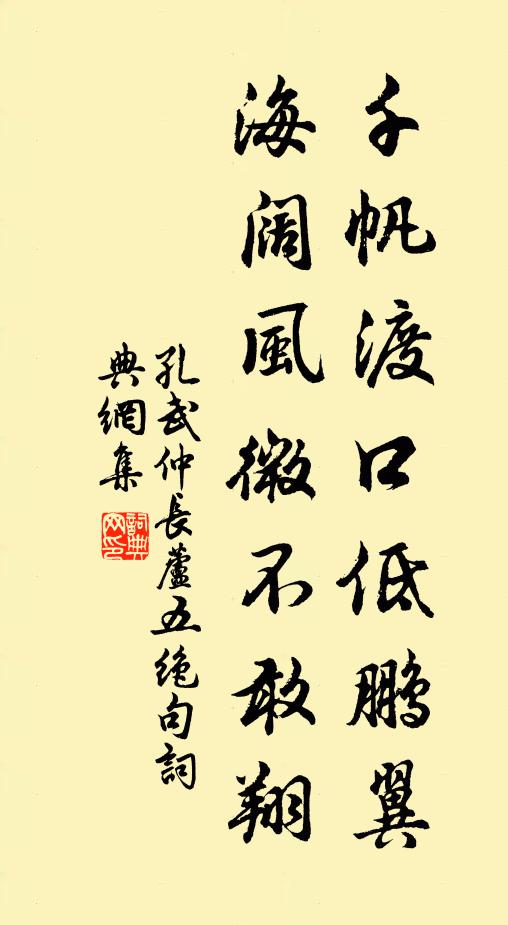 千帆渡口低鵬翼
海闊風微不敢翔
孔武仲長蘆五絶句詞
典網集
詞典
网印